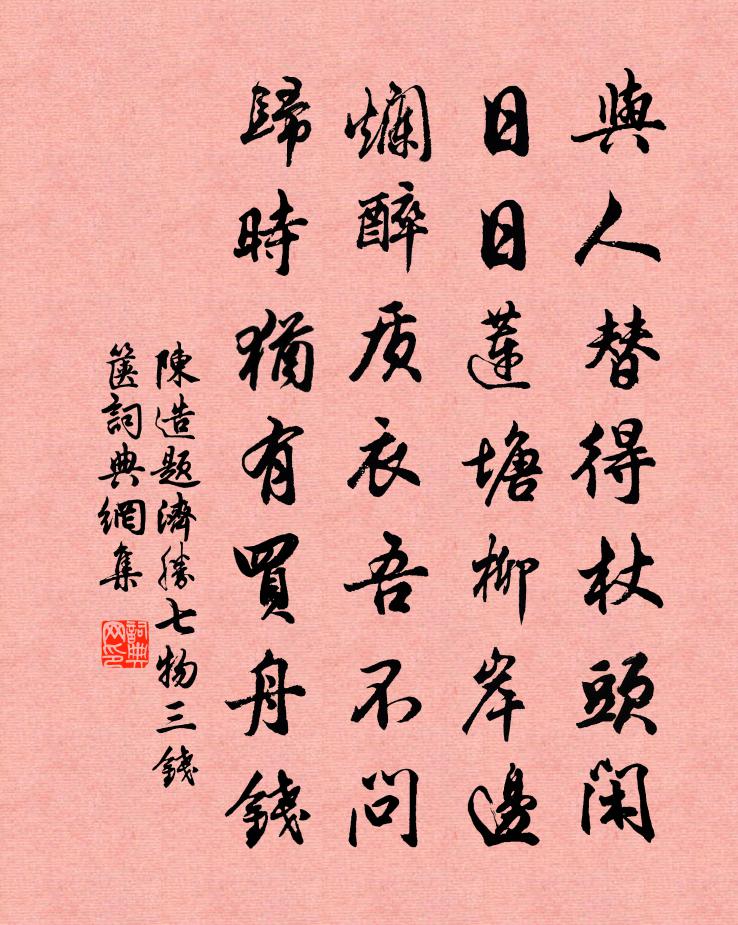 與人替得杖頭閑
日日蓮塘柳岸邊
爛醉质衣吾不問
歸時猶有買舟錢
陳造题濟勝七物三錢
箧詞典網集
詞典
网印